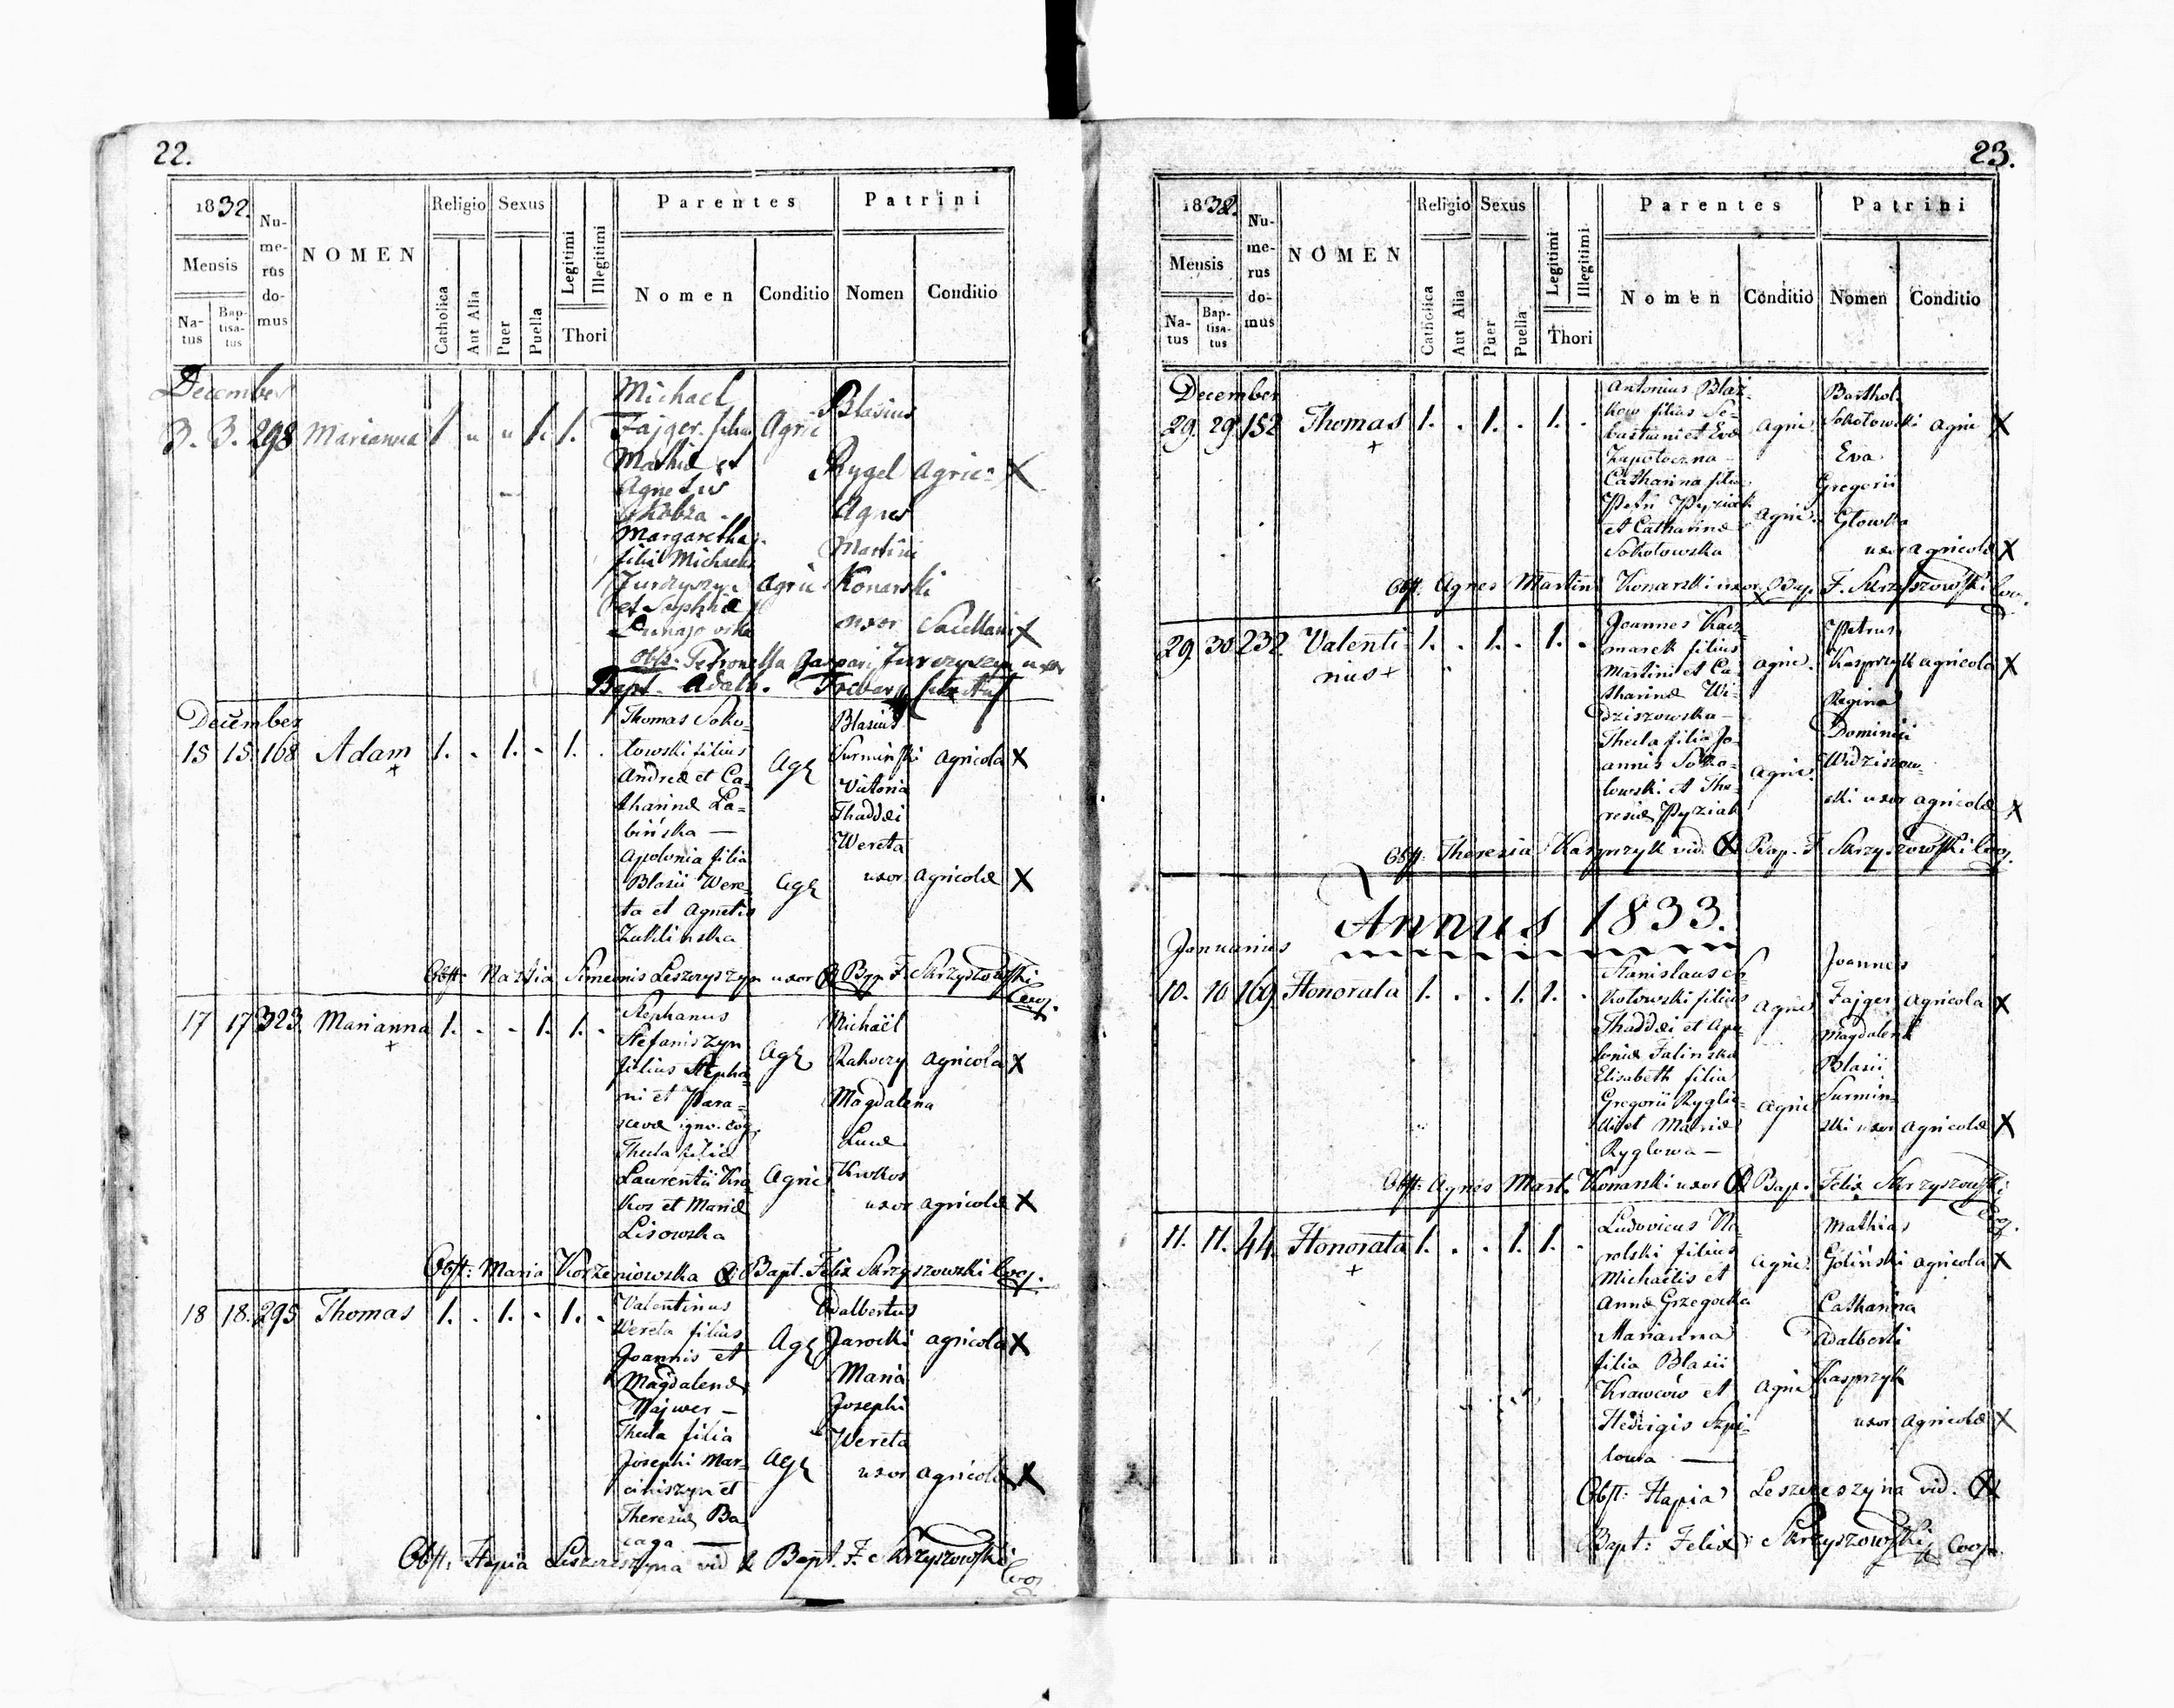 22.
1832.
Mensis
Na-
tus
Bap-
tisa-
tus
Nu-
me-
rus
do-
mus
NOMEN
Religio
Catholica
Aut Alia
Sexus
Puer
Puella
Legitimi
Illegitimi
Thori
Parentes
Nomen
Conditio
Patrini
Nomen
Conditio
December
3. 3. 298 Marianna 1 „ „ 1. 1.
Michael
Fajger filius Agric
Mathiæ et
Agnetis
Margaretha
filia Michaelis
Jurczyszyn Agric
et Sophiæ
Blasius
Rygel Agric X
Agnes
Martini
Konarski
uxor X
Obst. Petronella Gaspari Jurczyszyn uxor
Bapt. Adalb.
December
15 15. 168 Adam 1. . 1. - 1. .
Thomas Soko-
łowski filius
Andreæ et Ca-
tharinæ Ła-
bińska —
Apolonia filia
Blasii Were-
ta et Agnetis
Żuklińska
Agr
Agr
Blasius
Surmiński agricola X
Victoria
Thaddæi
Wereta
uxor agricolæ X
Obst: Simeonis Leszczyszyn uxor X Bap F. Skrzyszowski
Coop.
17 17 323. Marianna 1. - - 1. 1. .
Stephanus
Stefaniszyn
filius Stepha-
ni et Para-
scevæ igno. cog.
Thecla filia
Laurentii Kro-
kos et Mariæ
Lisowska
Agr
Agric
Michaël
Rakoczy agricola X
Magdalena
Lucæ
Krokos
uxor agricolæ X
Obst: Maria Korzeniowska X Bapt. Felix Skrzyszowski Coop.
18 18. 295 Thomas 1. . 1. - 1. .
Valentinus
Wereta filius
Joannis et
Magdalenæ
Majwer —
Thecla filia
Josephi Mar-
ciniszyn et
Theresiæ Ba-
caga —
Agr
Agr
Adalbertus
Jarocki agricola X
Maria
Josephi
Wereta
uxor agricolæ X
Obst: Hapia Leszczeszyna vid X Bapt. F. Skrzyszowski
Coop
23.
1832.
Mensis
Na-
tus
Bap-
tisa-
tus
Nu-
me-
rus
do-
mus
NOMEN
Religio
Catholica
Aut Alia
Sexus
Puer
Puella
Legitimi
Illegitimi
Thori
Parentes
Nomen
Conditio
Patrini
Nomen
Conditio
December
29. 29. 152 Thomas 1. . 1. . 1. .
Antonius Błaż-
kow filius Se-
bastiani et Evæ
Zapotoczna —
Catharina filia
Petri Pyziak
et Catharinæ
Sokołowska
Agric.
Agric.
Barthol.
Sokołowski Agric X
Eva
Gregorii
Głowka
uxor agricolæ X
Obst: Agnes Martini Konarski uxor X Bap. F. Skrzyszowski Coo.
29. 30. 232. Valenti 1. . 1. . 1. .
nus
Joannes Kacz-
marek filius
Martini et Ca-
tharinæ Wi-
dziszowska —
Thecla filia Jo-
annis Soko-
łowski et The-
resiæ Pyziak
agric.
Agric.
Petrus
Kasprzyk agricola X
Regina
Dominici
Widziszow-
ski uxor agricolæ X
Obst. Theresia Kasprzyk vid. X Bap. F. Skrzyszowski Coop.
Annus 1833.
Januarius
10. 10 169. Honorata 1. . . 1. 1. .
Stanislaus So-
kołowski filius
Thaddæi et Apo-
loniæ Falinska
Elisabeth filia
Gregorii Ryglic-
ki et Mariæ
Ryglowa —
Agric
Agric
Joannes
Fajger agricola X
Magdalena
Blasii
Surmin-
ski uxor agricolæ X
Obst: Agnes Mart. Konarski uxor X Bap. Felix Skrzyszowski
Coop.
11. 11. 44. Honorata 1. . . 1. 1. .
Ludovicus Ko-
rolski filius
Michaëlis et
Annæ Grzegocka
Marianna
filia Blasii
Krawców et
Hedvigis Szpi-
lowa —
Agric.
Agric
Mathias
Goliński agricola X
Catharina
Adalberti
Kasprzyk
uxor agricolæ X
Obst: Hapia Leszczeszyna vid. X
Bapt: Felix Skrzyszowski Coop.